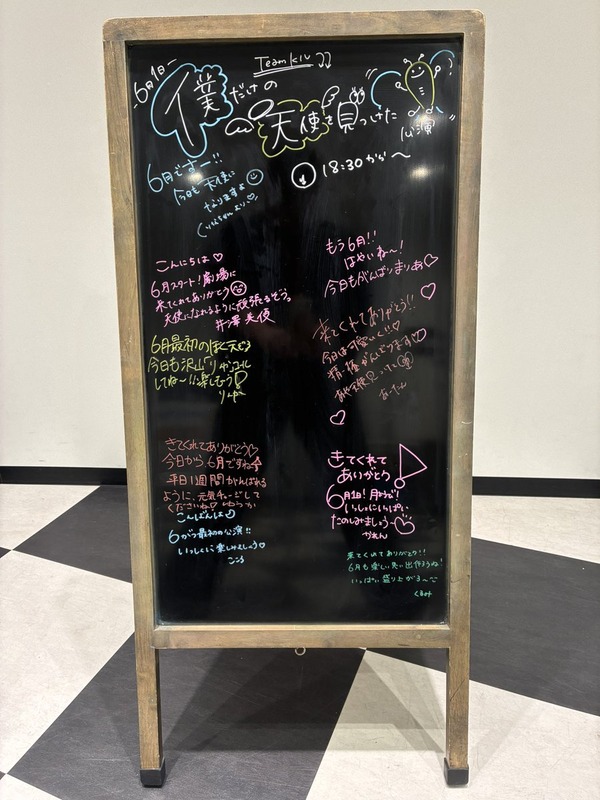 6月1日
Team KIV
僕だけの
天使を見つけた
公演
18:30から〜
6月ですー!!
今日も天使に
なりますよ
こんにちは♡
6月スタート!劇場に
来てくれてありがとう
天使になれるように頑張るぞう。
井澤美優
6月最初のぼく天だぁ
今日も沢山
してね〜!!楽しもう!
りんか
きてくれてありがとう♡
今日から、6月ですね
平日1週間がんばれる
ように、元気チャージして
くださいね!
こんばんは
6がつ最初の公演!!
いっしょに楽しみましょう♡
こころ
もう6月!!
はやいね〜!
今日もがんばりまりあ♡
来てくれてありがとう!!
今日は可愛いく!!♡
おーたん
きてくれて
ありがとう
6月1日!
いっしょにいっぱい
たのしみましょう
かれん
来てくれてありがとう!!
6月も楽しい思い出作ろうね!
いっぱい盛り上がる〜
くるみ